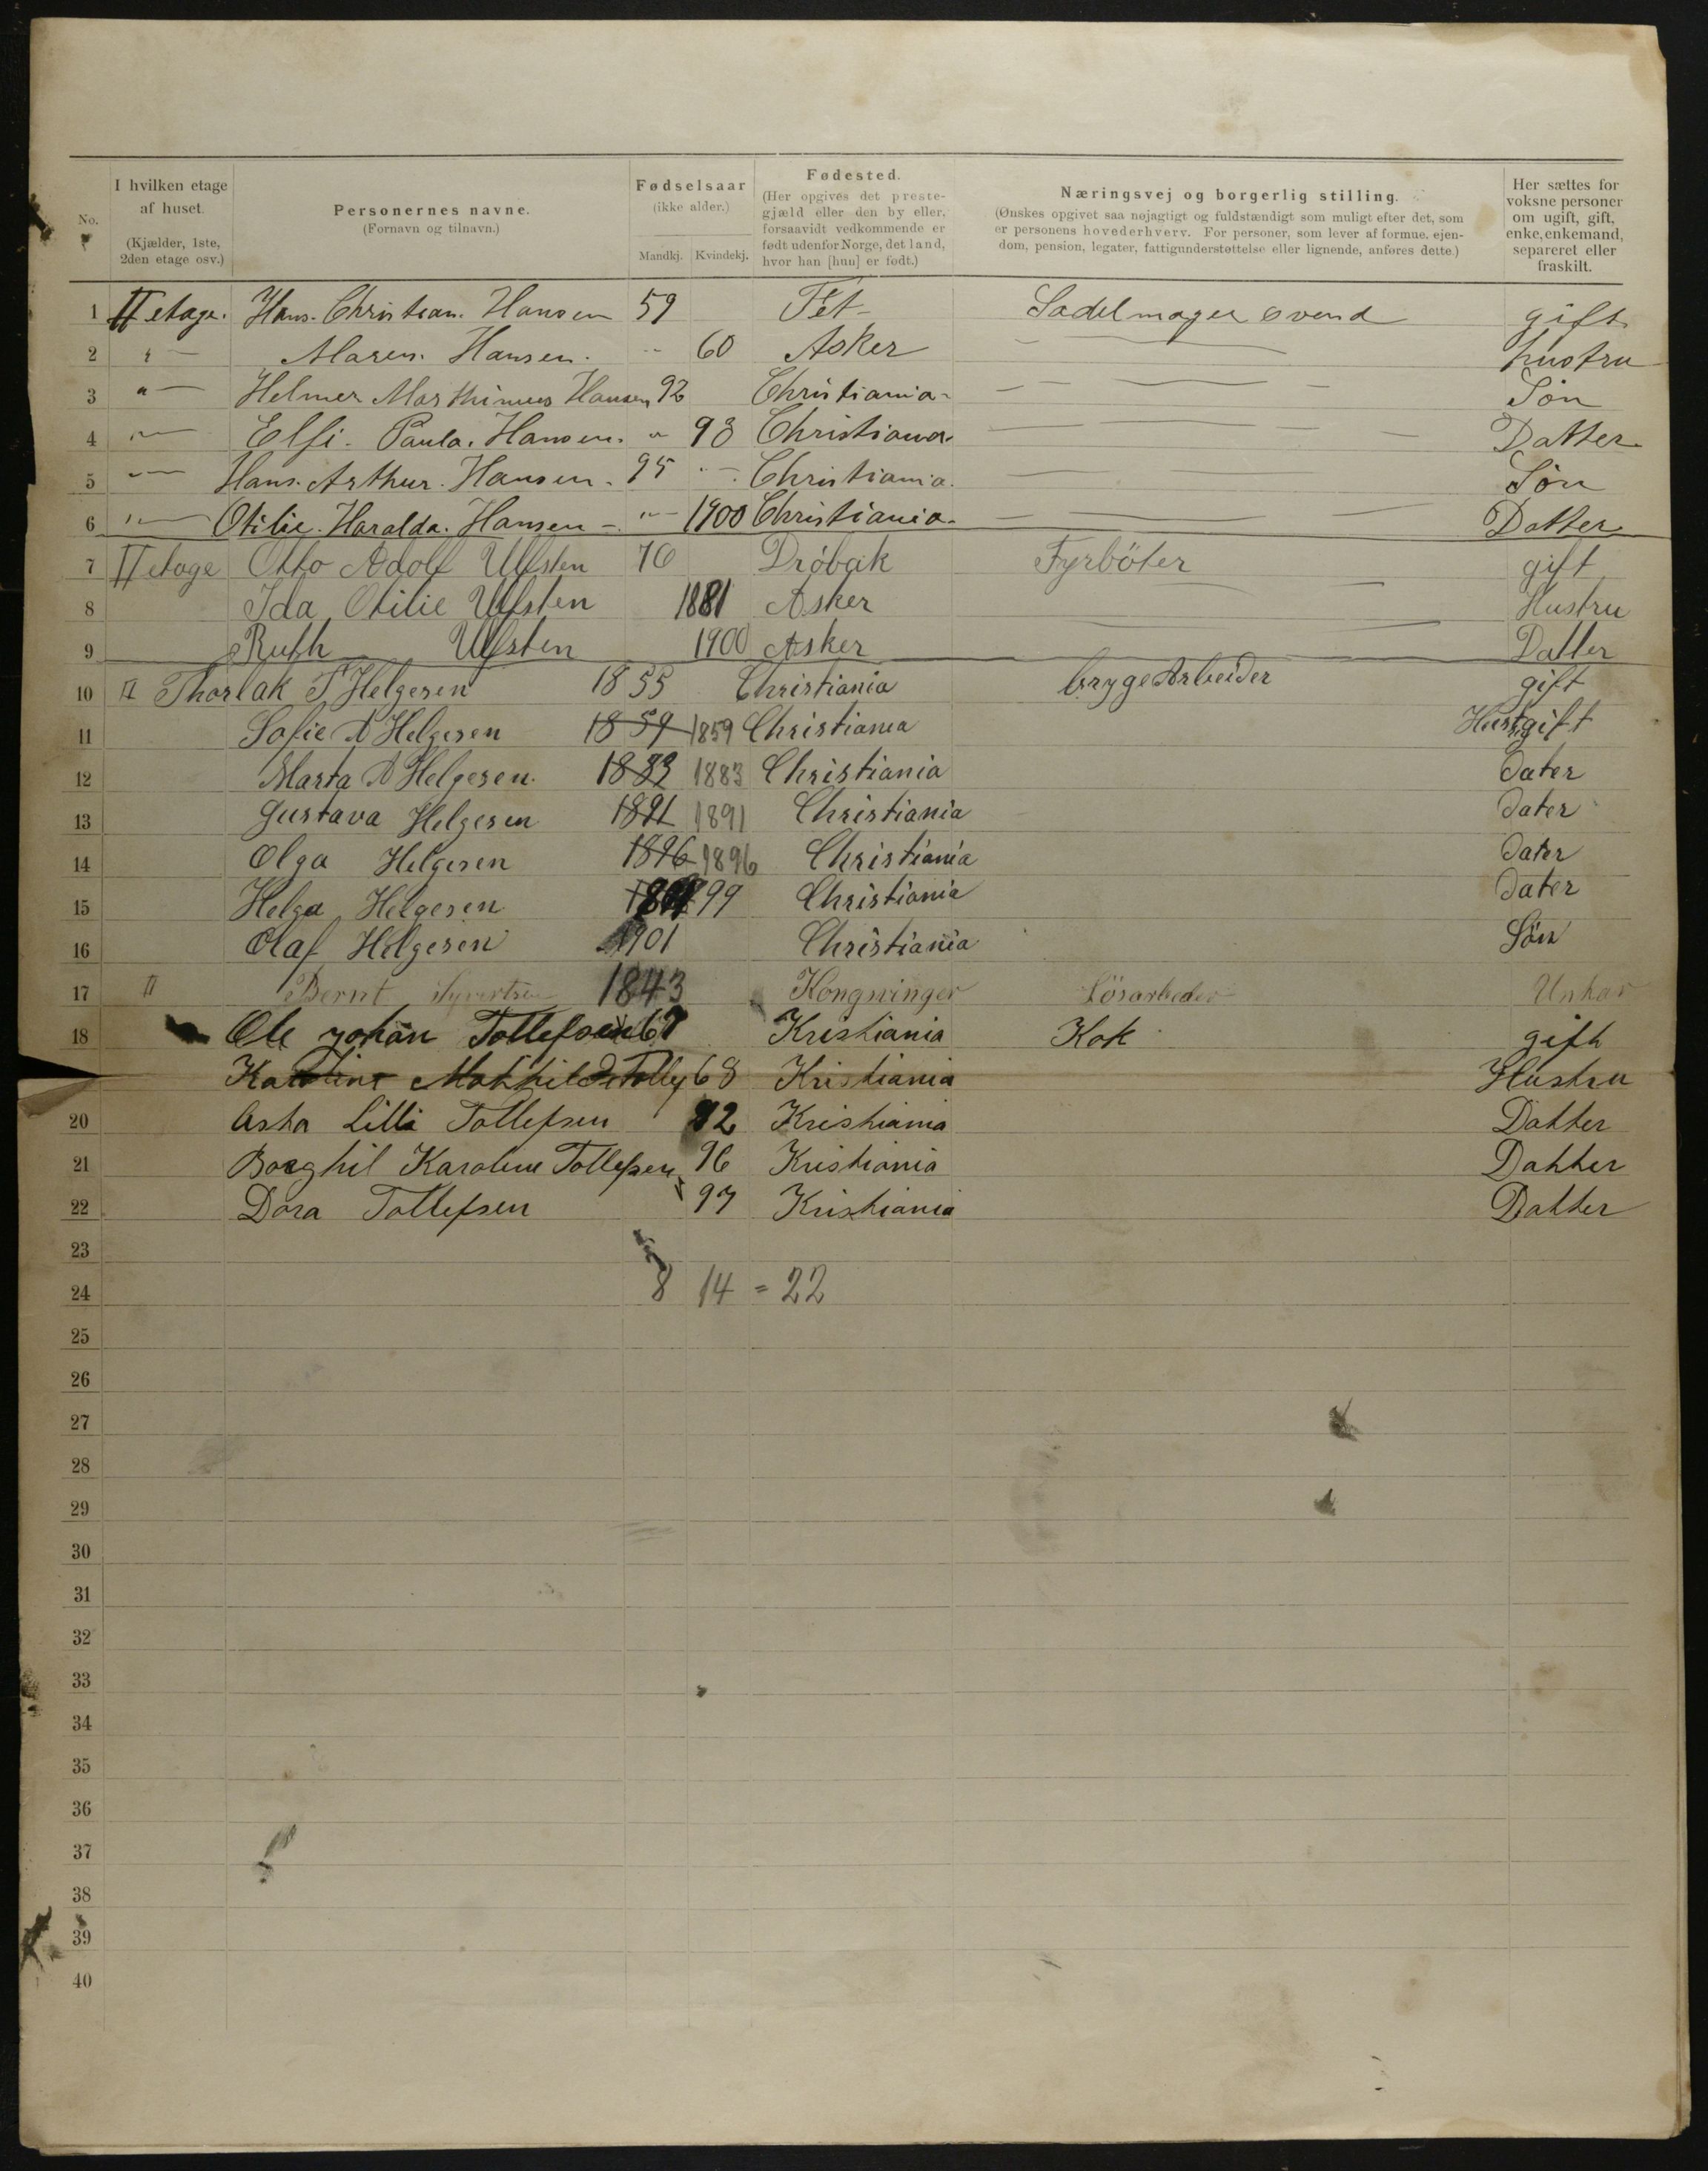 No.
I hvilken etage af huset.
(Kjælder, 1ste, 2den etage osv.)
Personernes navne.
(Fornavn og tilnavn.)
Fødselsaar
(ikke alder.)
Mandkj. Kvindekj.
Fødested.
(Her opgives det prestegjæld eller den by eller, forsaavidt vedkommende er født udenfor Norge, det land, hvor han [hun] er født.)
Næringsvej og borgerlig stilling.
(Ønskes opgivet saa nøjagtigt og fuldstændigt som muligt efter det, som er personens hovederhverv. For personer, som lever af formue, ejendom, pension, legater, fattigunderstøttelse eller lignende, anføres dette.)
Her sættes for voksne personer om ugift, gift, enke, enkemand, separeret eller fraskilt.
1 II etage. Hans. Christian. Hansen 59 Fet Sadelmager svend gift
2 " — Maren. Hansen. " 60 Asker — hustru
3 " — Helmer Marthinius Hansen 92 Christiania — Søn
4 " — Elfi. Paula. Hansen. " 93 Christiania — Datter
5 " — Hans. Arthur. Hansen. 95 " — Christiania. — Søn
6 " — Otilie. Haralda. Hansen — " — 1900 Christiania. — Datter
7 II etage Otto Adolf Ulfsten 76 Dröbak Fyrböter gift
8 Ida Otilie Ulfsten 1881 Asker — Hustru
9 Ruth Ulfsten 1900 Asker — Datter
10 II Thorlak T Helgesen 1855 Christiania brygeArbeider gift
11 Sofie A Helgesen 1859 1859 Christiania Hust. gift
12 Marta A Helgesen. 1883 1883 Christiania dater
13 Gustava Helgesen 1891 1891 Christiania dater
14 Olga Helgesen 1896 1896 Christiania dater
15 Helga Helgesen 99 Christiania dater
16 Olaf Helgesen 1901 Christiania Sön
17 II Bernt Syvertsen 1843 Kongsvinger Lösarbeder Unkar
18 Ole Johan Tollefsen 67 Kristiania Kok gift
Karoline Mathilde Tollef 68 Kristiania Hustru
20 Asta Lilli Tollefsen 92 Kristiania Datter
21 Borghil Karoline Tollefsen 96 Kristiania Datter
22 Dora Tollefsen 97 Kristiania Datter
23
24 8 14 = 22
25
26
27
28
29
30
31
32
33
34
35
36
37
38
39
40